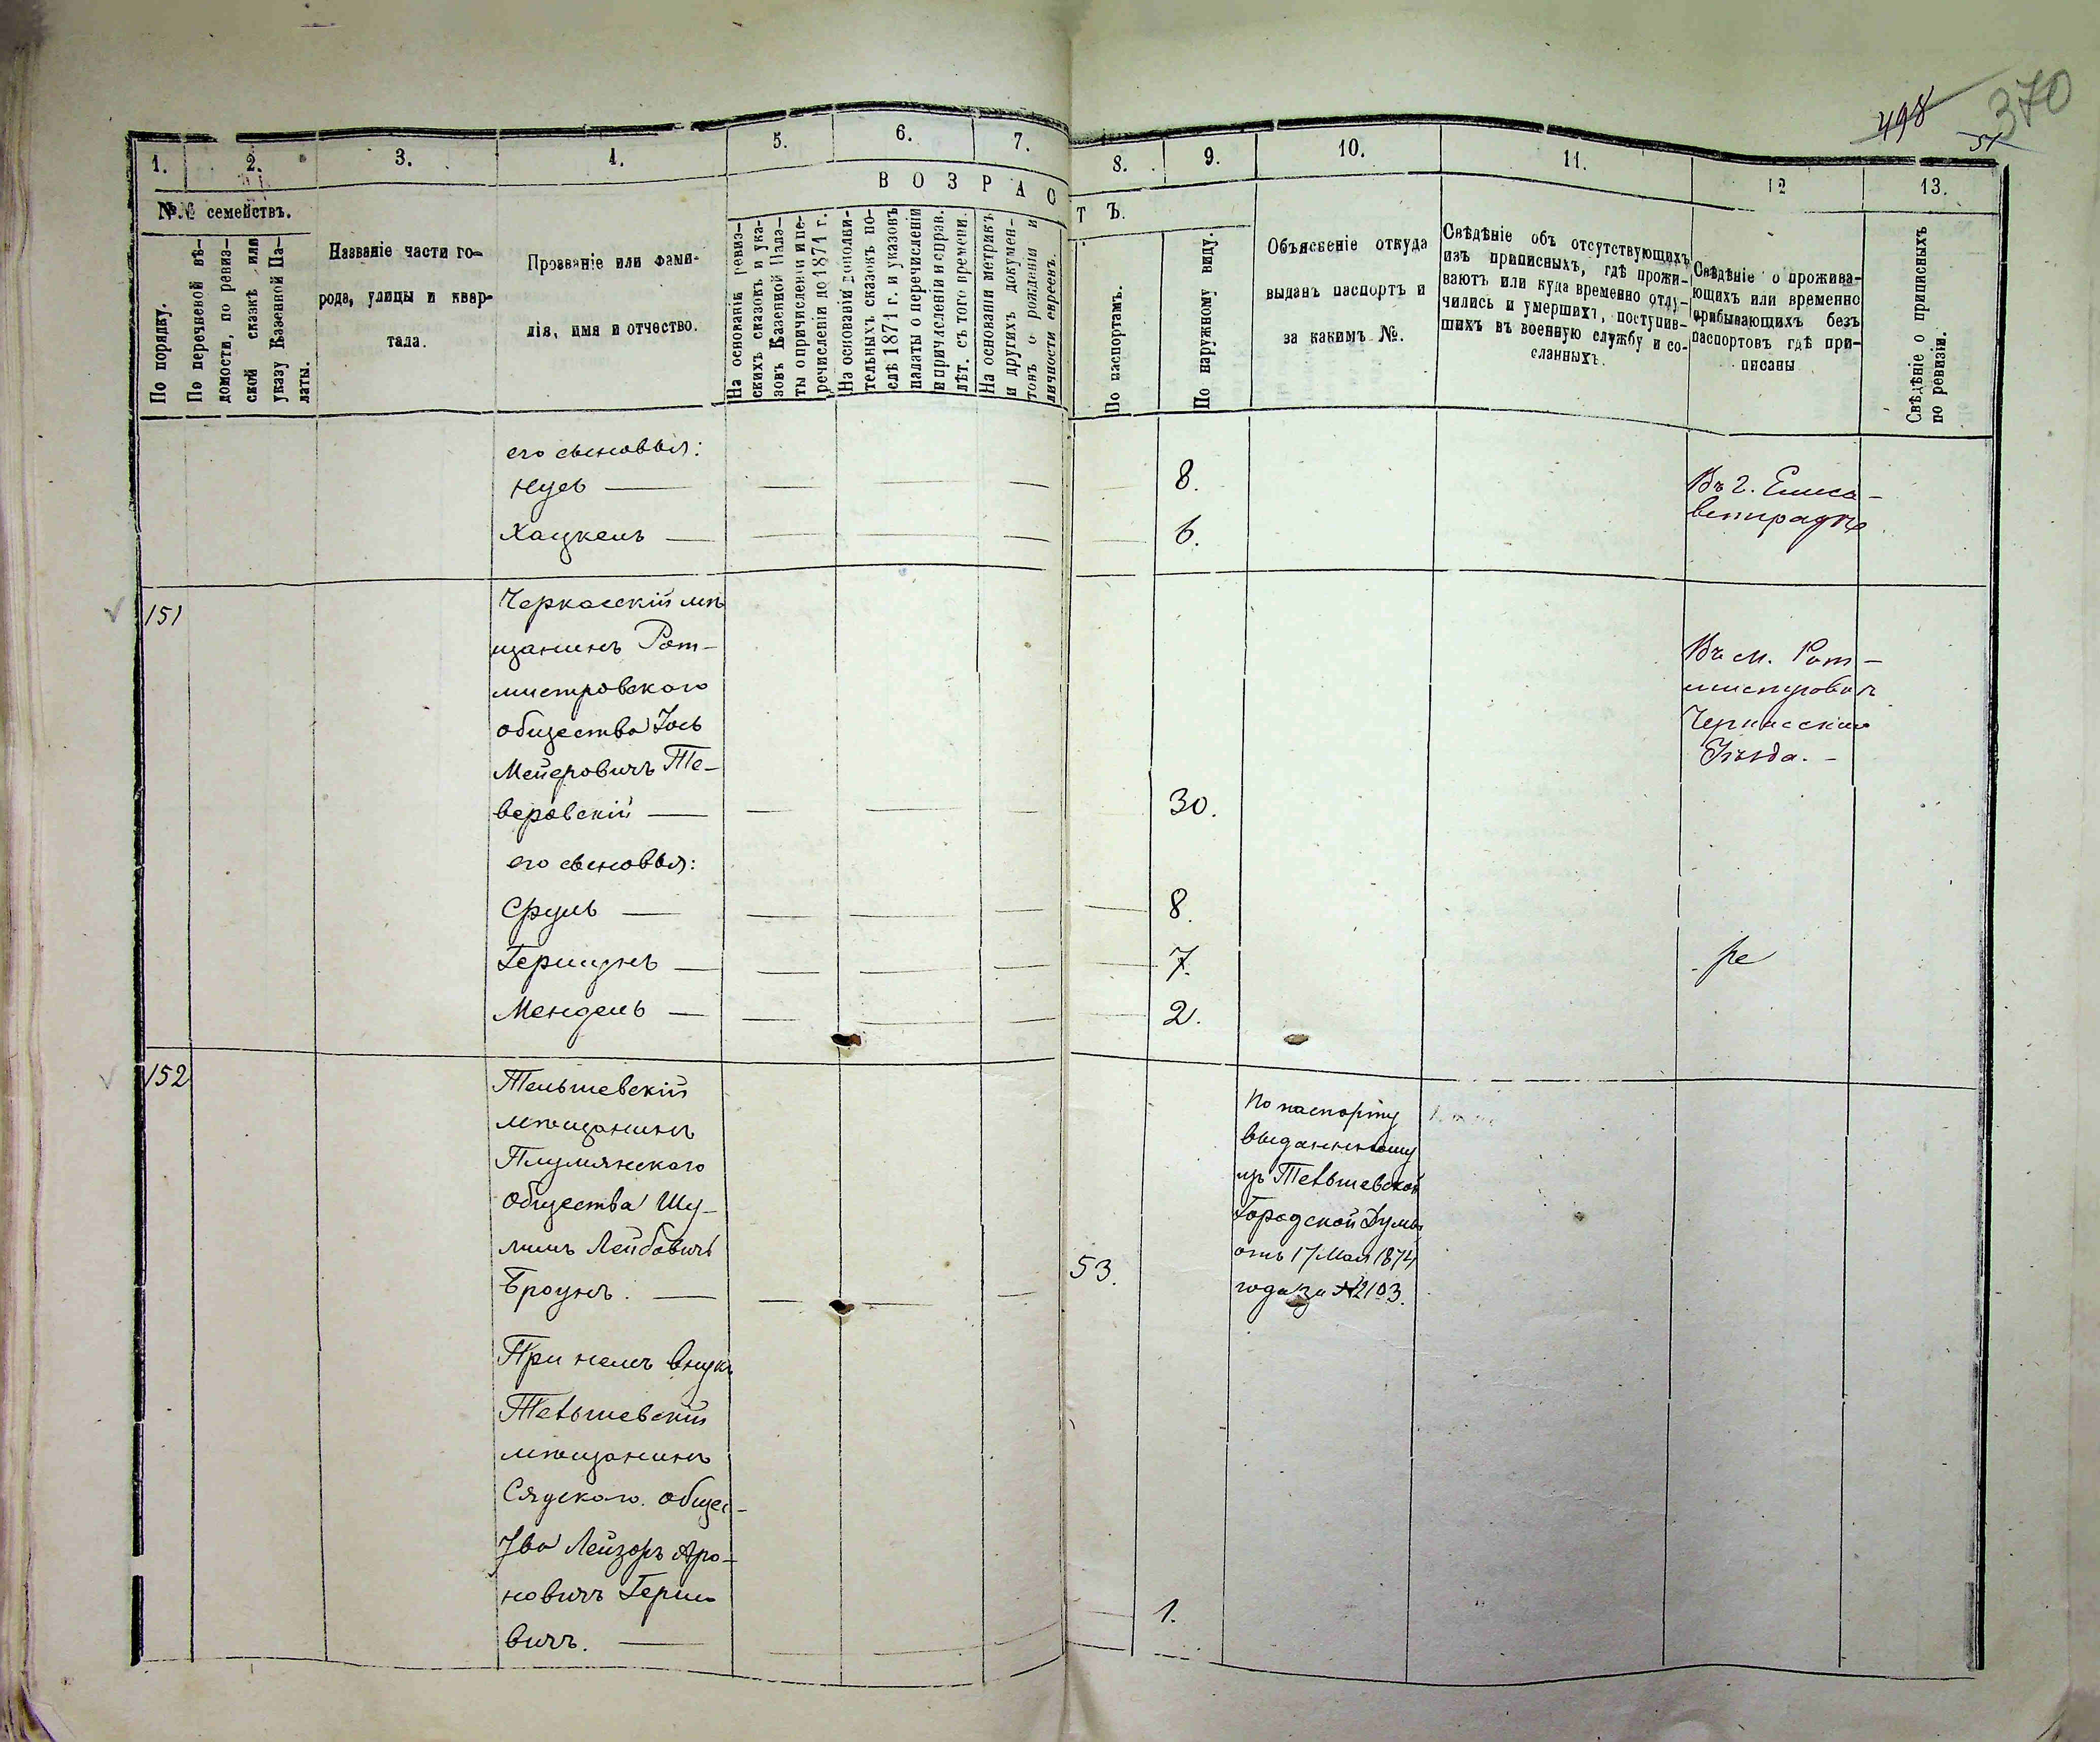 498
51
370
1.
2.
3.
4.
5.
6.
7.
8.
9.
10.
11.
12
13.
№№ семействъ.
По порядку.
По перечневой вѣ-
домости, по ревиз-
ской сказкѣ или
указу Казенной Па-
латы.
Названіе части го-
рода, улицы и квар-
тала.
Прозваніе или фами-
лія, имя и отчество.
ВОЗРАСТЪ.
На основаніи ревиз-
скихъ сказокъ и ука-
зовъ Казенной Пала-
ты о причисленіи и пе-
речисленіи до 1871 г.
На основаніи дополни-
тельныхъ сказокъ по-
слѣ 1871 г. и указовъ
палаты о перечисленіи
и причисленіи и справ.
лѣт. съ того времени.
На основаніи метрикъ
и другихъ докумен-
товъ о рожденіи и
личности евреевъ.
По паспортамъ.
По наружному виду.
Объясненіе откуда
выданъ паспортъ и
за какимъ №.
Свѣдѣніе объ отсутствующихъ
изъ приписныхъ, гдѣ прожи-
ваютъ или куда временно отлу-
чились и умершихъ, поступив-
шихъ въ военную службу и со-
сланныхъ.
Свѣдѣніе о прожива-
ющихъ или временно
прибывающихъ безъ
паспортовъ гдѣ при-
писаны
Свѣдѣніе о приписныхъ
по ревизіи.
его сыновья:
Нусъ — 8.
Хацкель — 6.
Въ г. Елиса-
ветградѣ
151
Черкасскій мѣ
щанинъ Рот-
мистровского
общества Іось
Мейеровичъ Тве-
веровскій — 30.
Въ м. Рот-
мистровкѣ
Черкасскаго
Уѣзда. -
его сыновья:
Сруль — 8.
Гершунъ — 7.
Мендель — 2.
152
Тельшевскій
мѣщанинъ
Плумянского
общества Шу-
лимъ Лейбовичъ
Броунъ. — 53.
По паспорту
выданному
изъ Тельшевской
Городской Думы
отъ 17 Мая 1874
года за №2103.
При немъ внукъ
Тельшевскій
мѣщанинъ
Сядского общес-
тва Лейзоръ Аро-
новичъ Герши
вичъ. — 1.